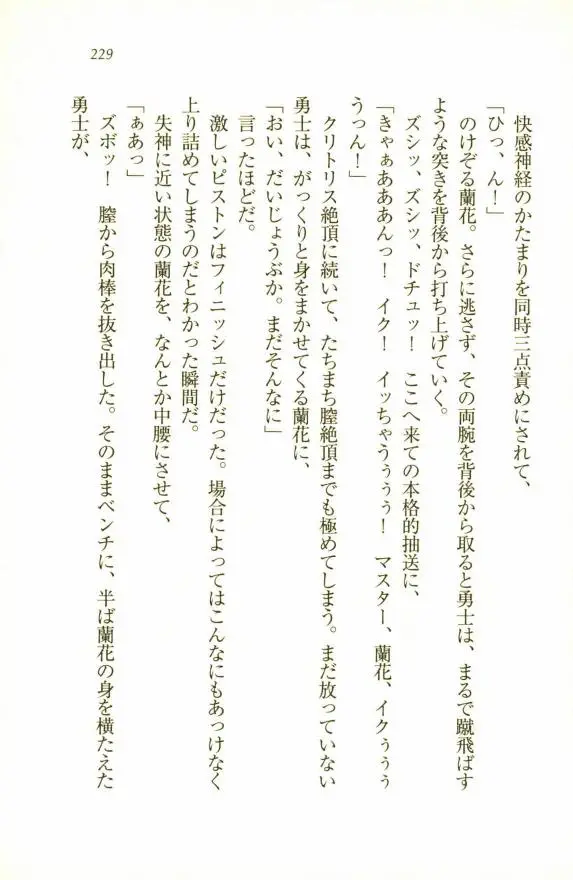 229
快感神経のかたまりを同時三点責めにされて、
「ひっ、ん！」
のけぞる蘭花。さらに逃さず、その両腕を背後から取ると勇士は、まるで蹴飛ばす
ような突きを背後から打ち上げていく。
ズシッ、ズシッ、ドチュッ！　ここへ来ての本格的抽送に、
「きゃぁあああんっ！　イク！　イッちゃうぅぅぅ！　マスター、蘭花、イクぅぅぅ
うっん！」
クリトリス絶頂に続いて、たちまち膣絶頂までも極めてしまう。まだ放っていない
勇士は、がっくりと身をまかせてくる蘭花に、
「おい、だいじょうぶか。まだそんなに」
言ったほどだ。
激しいピストンはフィニッシュだけだった。場合によってはこんなにもあっけなく
上り詰めてしまうのだとわかった瞬間だ。
失神に近い状態の蘭花を、なんとか中腰にさせて、
「ぁあっ」
ズボッ！　膣から肉棒を抜き出した。そのままベンチに、半ば蘭花の身を横たえた
勇士が、